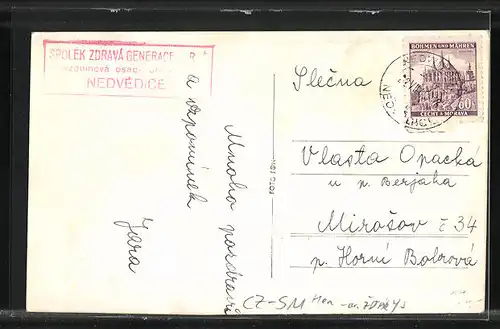 SPOLEK ZDRAVÁ GENERACE
NEDVĚDICE
Mnoho pozdravů
a vzpomínek
Jára
FOTO IGN
BÖHMEN UND MÄHREN
60
ČECHY A MORAVA
Slečna
Vlasta Opacká
u p. Berjaka
Mirošov č 34
p. Horní Bobrová
CZ-SM